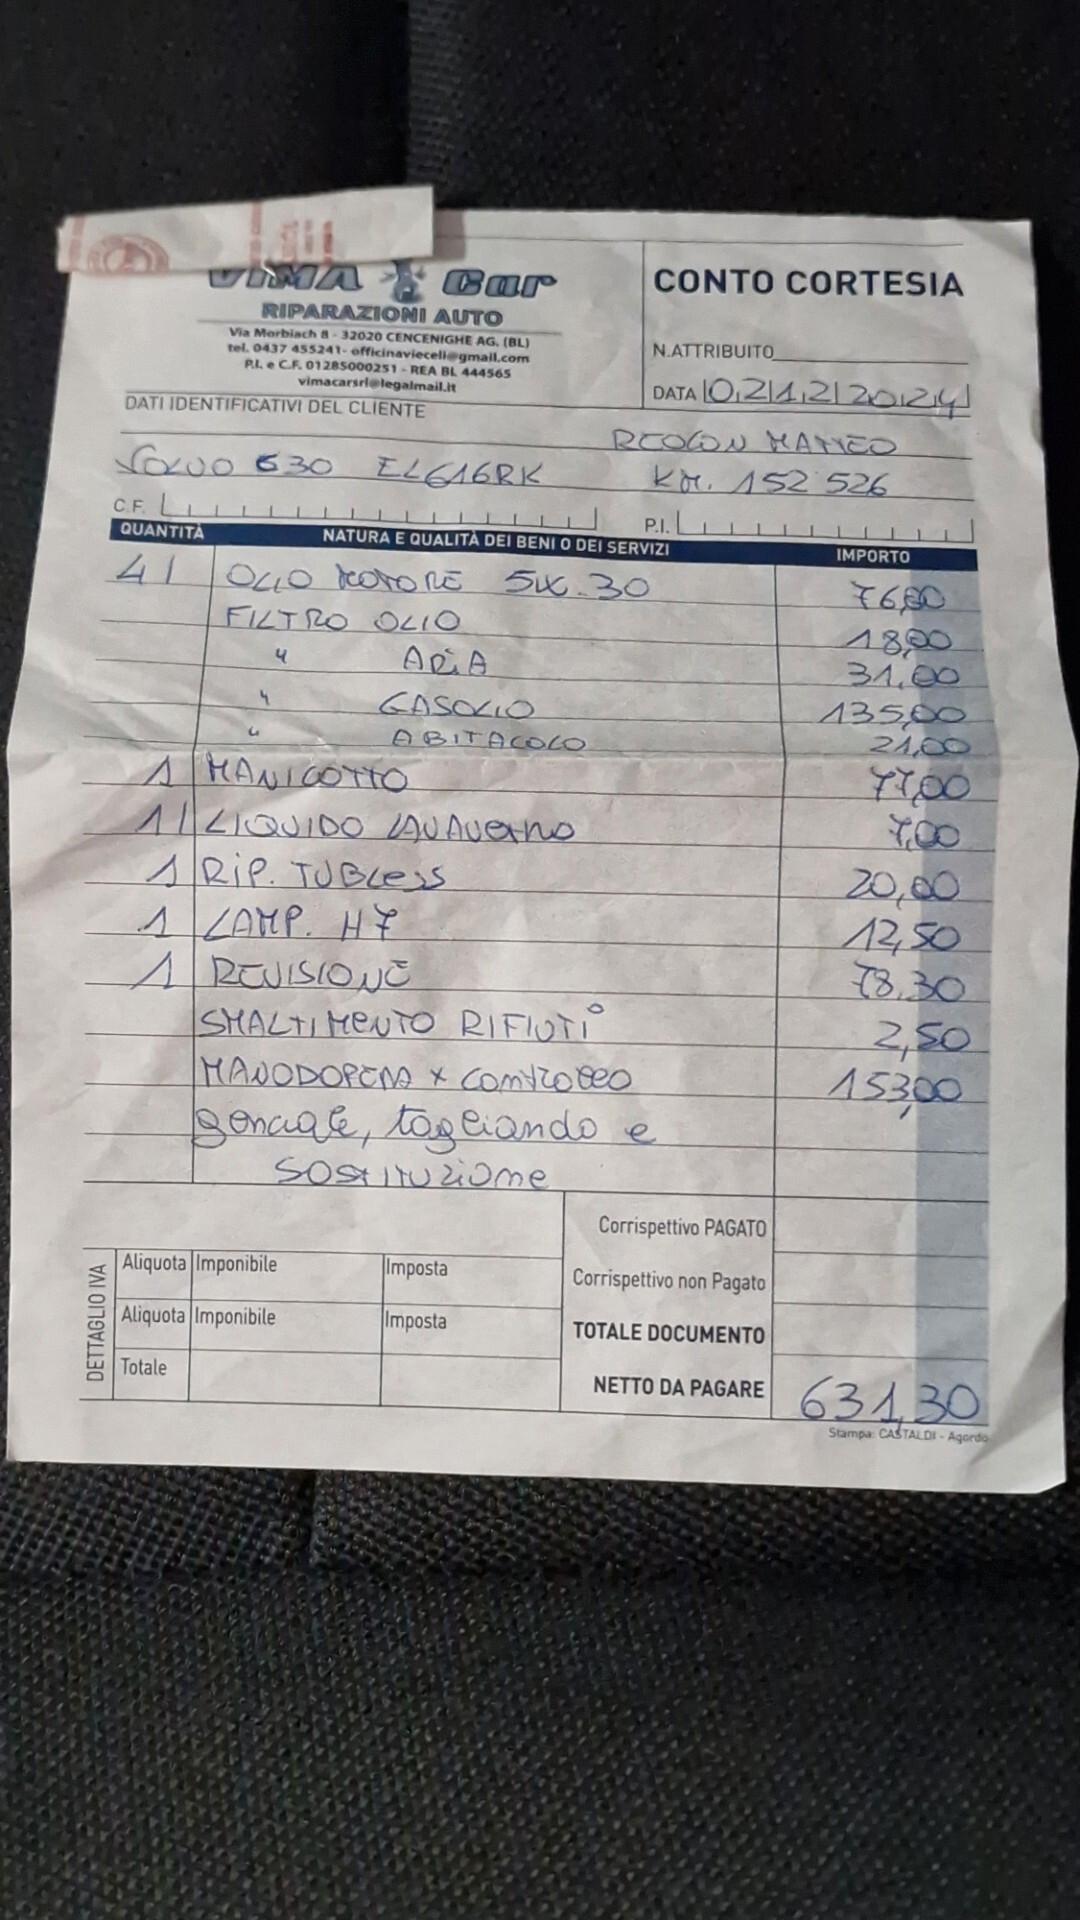 VIMA Car
RIPARAZIONI AUTO
Via Morbiach 8 - 32020 CENCENIGHE AG. (BL)
tel. 0437 455241- officinavieceli@gmail.com
P.I. e C.F. 01285000251 - REA BL 444565
vimacarsrl@legalmail.it
CONTO CORTESIA
N.ATTRIBUITO
DATA 02122024
DATI IDENTIFICATIVI DEL CLIENTE
MATTEO
VOLVO EL616RK KM. 152 526
C.F. P.I.
QUANTITÀ NATURA E QUALITÀ DEI BENI O DEI SERVIZI IMPORTO
4 l OLIO MOTORE 5W.30 76,00
FILTRO OLIO 18,00
" ARiA 31,00
" GASOLIO 135,00
" ABITACOLO 21,00
1 MANICOTTO 77,00
1 l LIQUIDO LAVAVETRO 7,00
1 RiP. TUBLess 20,00
1 LAMP. H7 12,50
1 REVISIONE 78,30
SMALTIMENTO RIFIUTI 2,50
MANODOPERA x CONTROLLO 153,00
generale, tagliando e
SOSTITUZIONE
Corrispettivo PAGATO
Corrispettivo non Pagato
TOTALE DOCUMENTO
NETTO DA PAGARE 631,30
DETTAGLIO IVA
Aliquota Imponibile Imposta
Aliquota Imponibile Imposta
Totale
Stampa: CASTALDI - Agordo